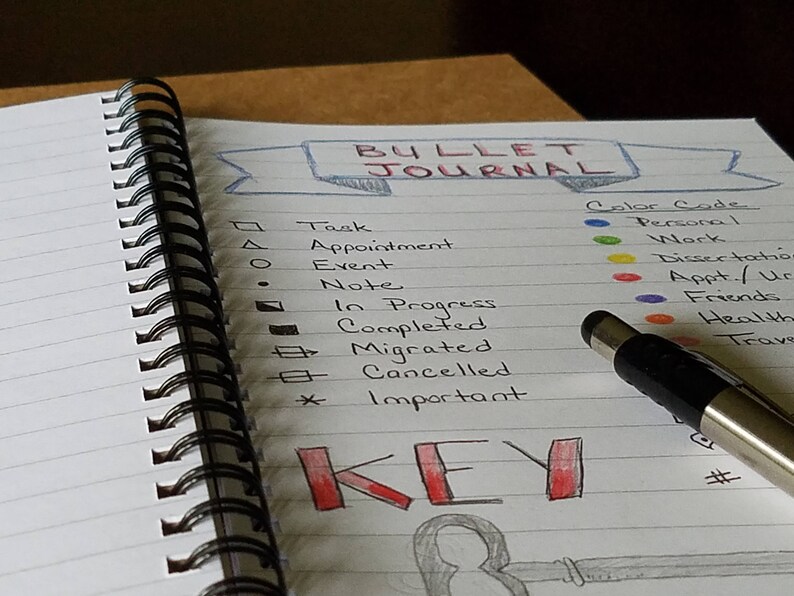 BULLET
JOURNAL
Task
Appointment
Event
Note
In Progress
Completed
Migrated
Cancelled
Important
Color Code
Personal
Work
Dissertatio
Appt./Ur
Friends
Health
Trave
KEY
#